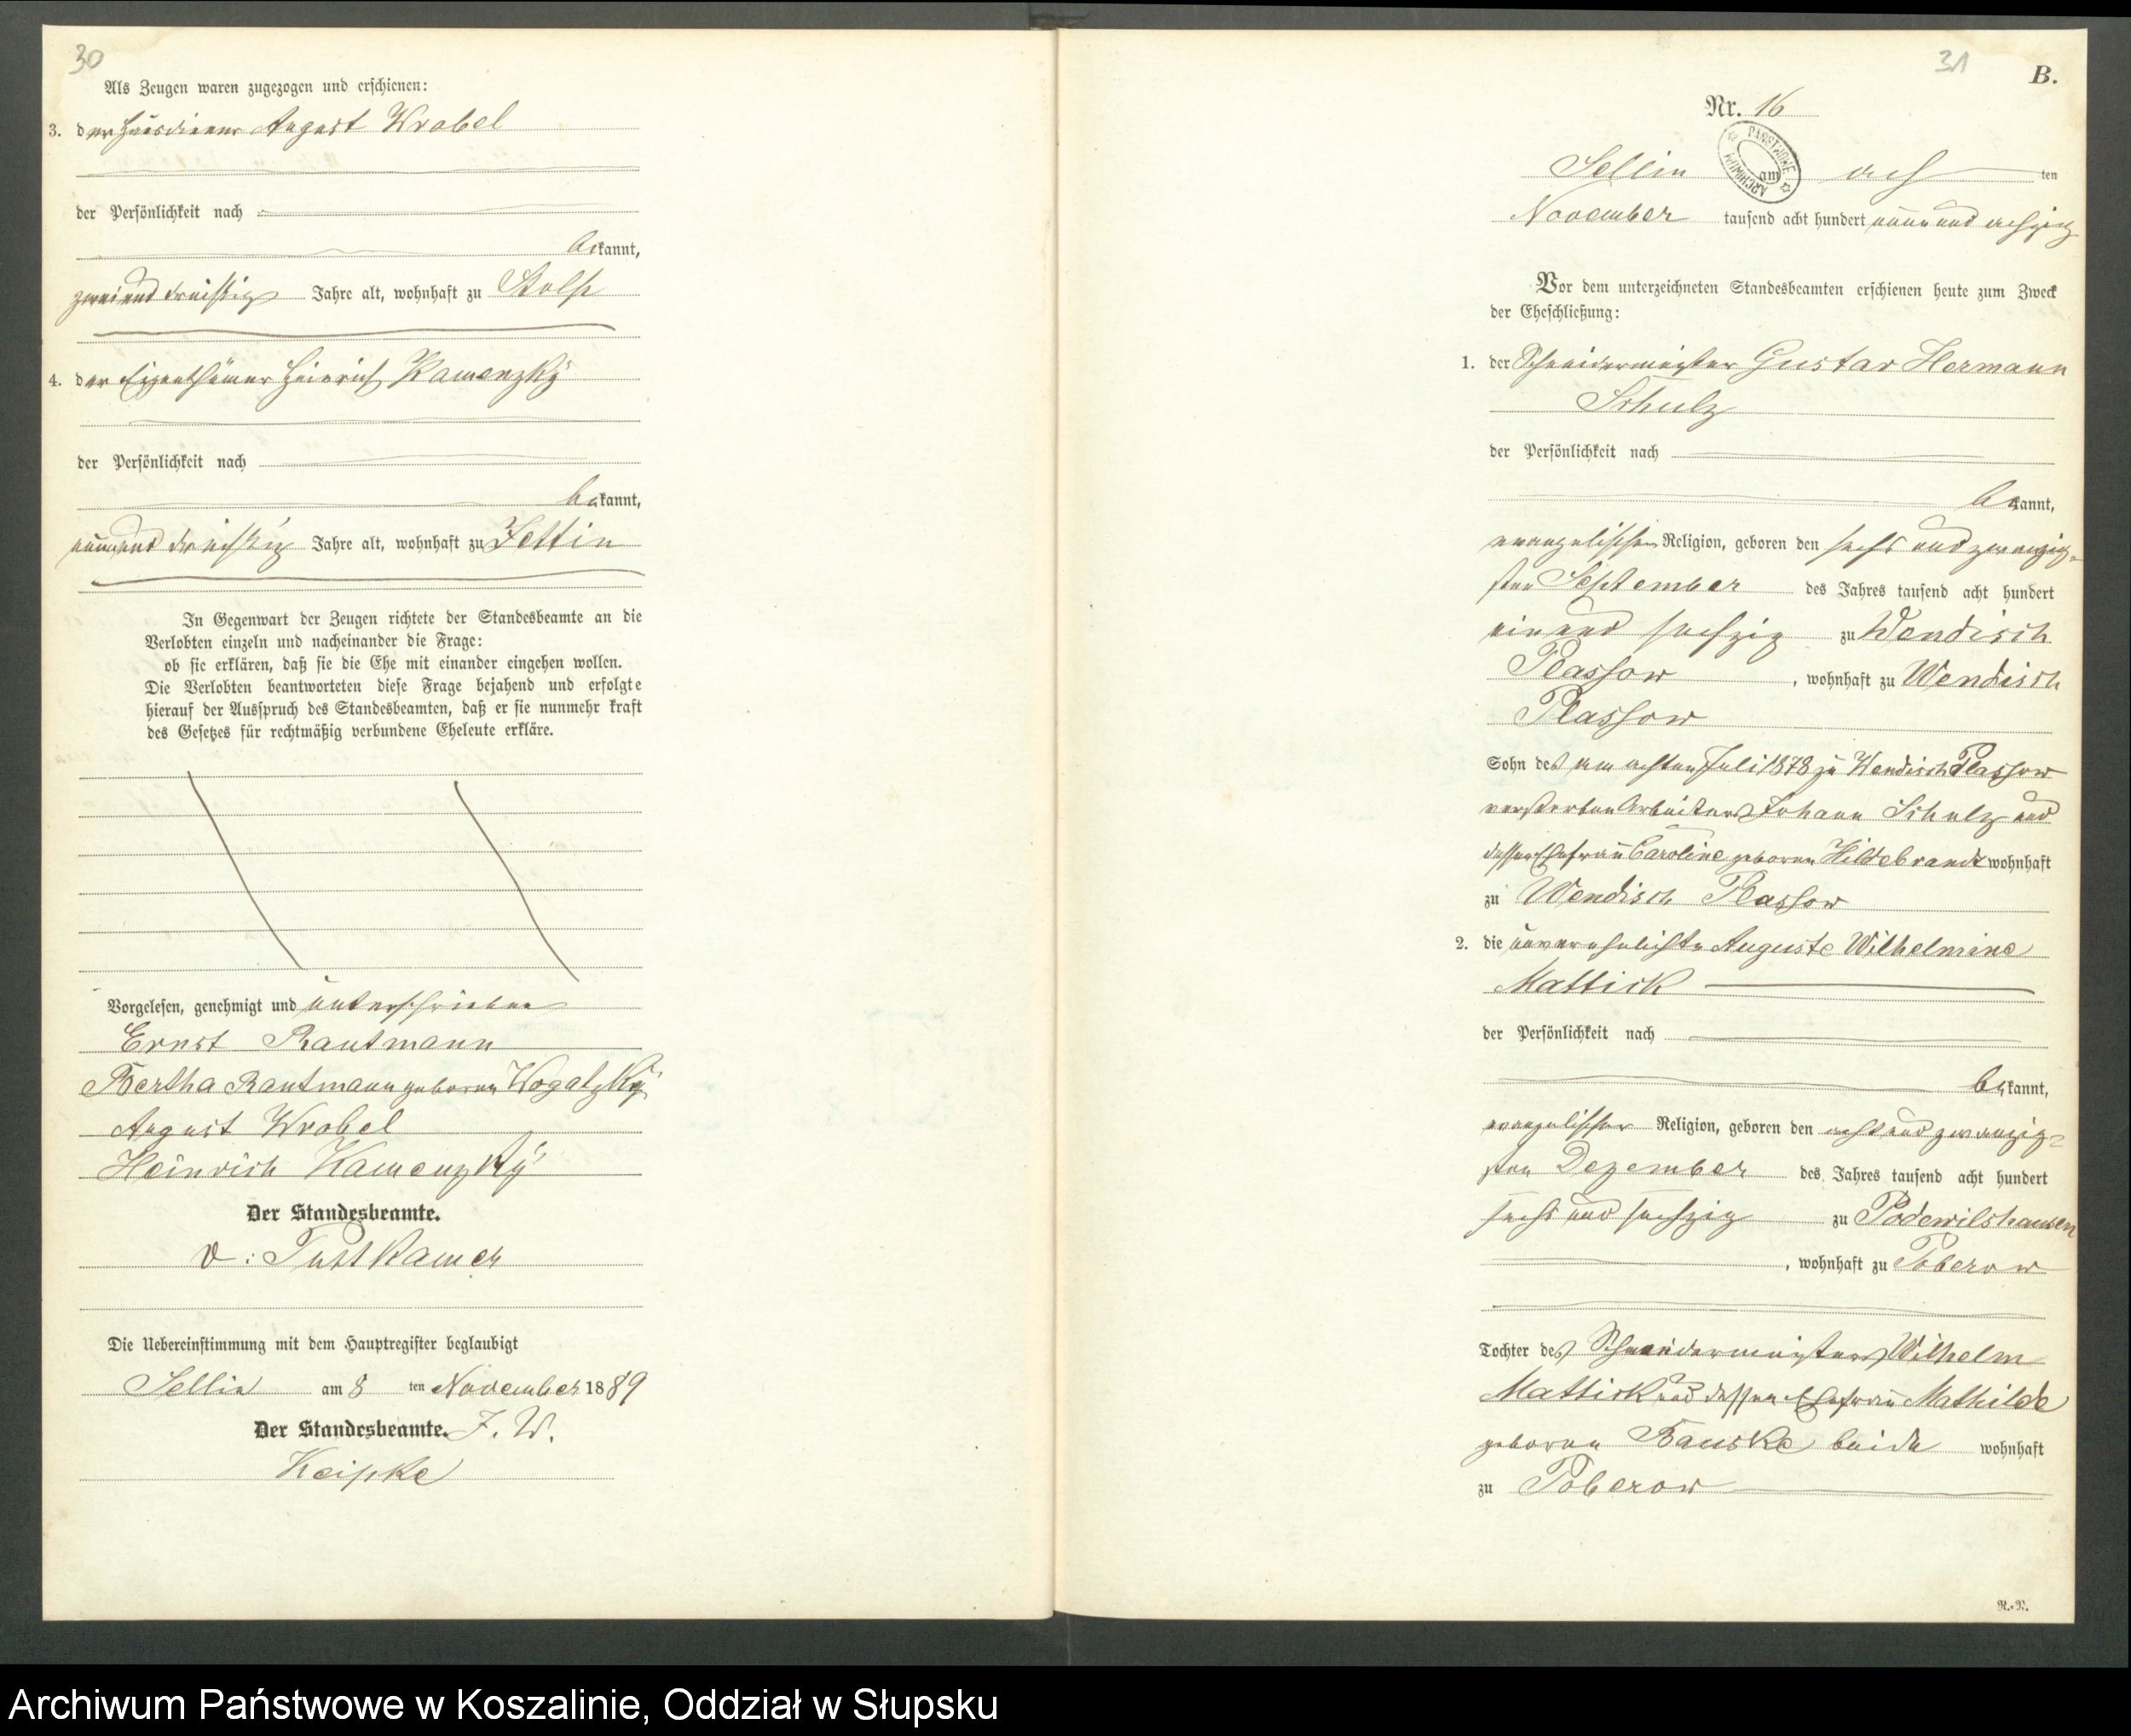 30
Als Zeugen waren zugezogen und erschienen:
3. der Hausdiener August Wrobel
der Persönlichkeit nach
bekannt,
zweiund dreißig Jahre alt, wohnhaft zu Stolp
4. der Eigenthümer Heinrich Kamenzky
der Persönlichkeit nach
bekannt,
neunund dreißig Jahre alt, wohnhaft zu
In Gegenwart der Zeugen richtete der Standesbeamte an die
Verlobten einzeln und nacheinander die Frage:
ob sie erklären, daß sie die Ehe mit einander eingehen wollen.
Die Verlobten beantworteten diese Frage bejahend und erfolgte
hierauf der Ausspruch des Standesbeamten, daß er sie nunmehr kraft
des Gesetzes für rechtmäßig verbundene Eheleute erkläre.
Vorgelesen, genehmigt und unterschrieben
Ernst Rautmann
Bertha Rautmann geboren Wogatzky
August Wrobel
Heinrich Kamenzky
Der Standesbeamte.
v: Puttkamer
Die Uebereinstimmung mit dem Hauptregister beglaubigt
Sellin am 8 ten November 1889
Der Standesbeamte. J. W.
Keipke
31
B.
Nr. 16
ARCHIWUM PAŃSTWOWE
Sellin am ach ten
November tausend acht hundert neun und achzig
Vor dem unterzeichneten Standesbeamten erschienen heute zum Zweck
der Eheschließung:
1. der Schneidermeister Gustav Hermann
Schulz
der Persönlichkeit nach
bekannt,
evangelischer Religion, geboren den sechs und zwanzig-
sten September des Jahres tausend acht hundert
ein und sechzig zu Wendisch
Plassow, wohnhaft zu Wendisch
Plassow
Sohn des am achten Juli 1878 zu Wendisch Plassow
verstorben Arbeiters Johann Schulz und
dessen Ehefrau Caroline geboren Hildebrandt wohnhaft
zu Wendisch Plassow
2. die unverehelichte Auguste Wilhelmine
Mattick
der Persönlichkeit nach
bekannt,
evangelischer Religion, geboren den acht und zwanzig-
sten Dezember des Jahres tausend acht hundert
sechs und sechzig zu Podewilshausen
, wohnhaft zu Poberow
Tochter des Schneidermeisters Wilhelm
Mattick und dessen Ehefrau Mathilde
geboren Bauske beide wohnhaft
zu Poberow
R.=N.
Archiwum Państwowe w Koszalinie, Oddział w Słupsku